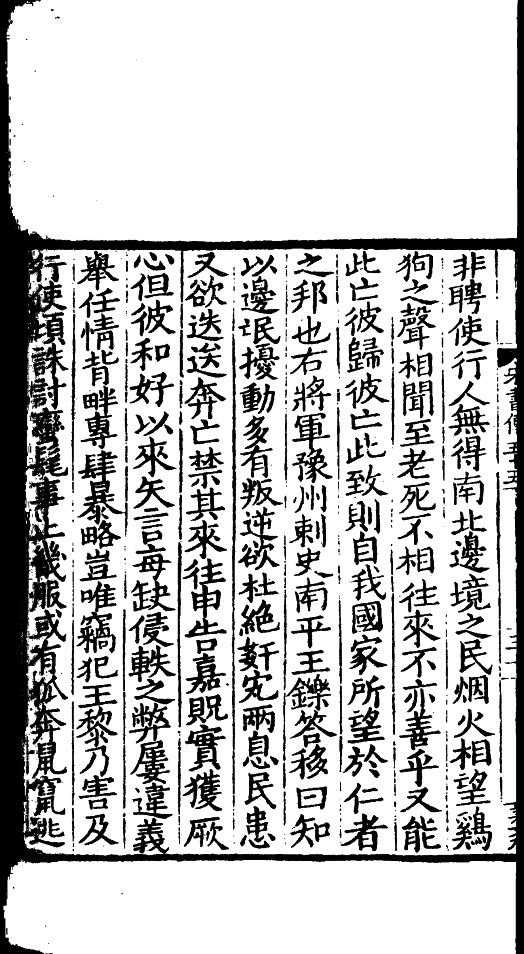 非聘使行人無得南北邊境之民烟火相望鷄
狗之聲相聞至老死不相往來不亦善乎又能
此亡彼歸彼亡此致則自我國家所望於仁者
之邦也右將軍豫州剌史南平王鑠答移曰知
以邊氓擾動多有叛逆欲杜絶姧宄兩息民患
又欲迭送奔亡禁其來往申告嘉貺實獲厥
心但彼和好以來矢言每缺侵軼之弊屢違義
舉任情背畔專肆暴略豈唯竊犯王黎乃害及
行使頃誅討蠻髦事止畿服或有狐奔鼠竄逃